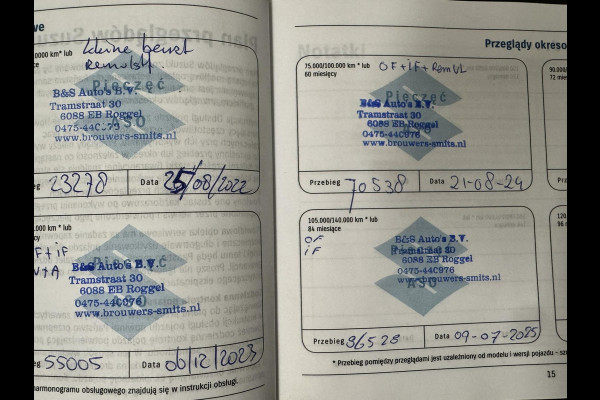 we
0.000 km* lub
kleine beurt
Remvlst.
Pieczęć
ASO
B&S Auto's B.V.
Tramstraat 30
6088 EB Roggel
www.brouwers-smits.nl
23278
Data 25/08/2022
0.000 km* lub
F + iF
V+A
Pieczęć
ASO
B&S Auto's B.V.
Tramstraat 30
6088 EB Roggel
0475-440976
www.brouwers-smits.nl
55005
Data 06/12/2023
harmonogramu obsługowego znajdują się w instrukcji obsługi.
Przeglądy okreso
75.000/100.000 km * lub
60 miesięcy
OF+iF+RemVL
Pieczęć
ASO
B&S Auto's B.V.
Tramstraat 30
6088 EB Roggel
0475-440976
www.brouwers-smits.nl
Przebieg 70538
Data 21-08-24
105.000/140.000 km * lub
84 miesiące
OF
iF
Pieczęć
ASO
B&S Auto's B.V.
Tramstraat 30
6088 EB Roggel
0475-440976
www.brouwers-smits.nl
Przebieg 86528
Data 09-07-2025
90.000/
72 mie
120.
96 m
* Przebieg pomiędzy przeglądami jest uzależniony od modelu i wersji pojazdu – szc
15